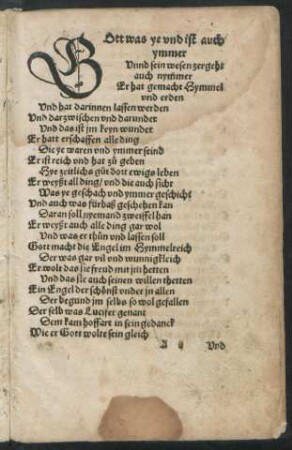 GOtt was ye vnd ist auch
ymmer
Vnnd sein wesen zergeht
auch nym̃er
Er hat gemacht Hymmel
vnd erden
Vnd hat darinnen lassen werden
Vnd darzwischen vnd darunder
Vnd das ist jm keyn wunder
Er hatt erschaffen alle ding
Die ye waren vnd ymmer seind
Er ist reich vnd hat zů geben
Hye zeitlichs gůt dort ewigs leben
Er weyßt all ding/ vnd die auch sicht
Was ye geschach vnd ymmer geschicht
Vnd auch was fürbaß geschehen kan
Daran soll nyemand zweiffel han
Er weyßt auch alle ding gar wol
Vnd was er thůn vnd lassen soll
Gott macht die Engel im Hymmelreich
Der was gar vil vnd wunnigkleich
Er wolt das sie freud mit jm hetten
Vnd das sie auch seinen willen thetten
Ein Engel der schönst vnder jn allen
Der begund jm selbs so wol gefallen
Der selb was Lucifer genant
Dem kam hoffart in sein gedanck
Wie er Gott wolte sein gleich
A ij Vnd